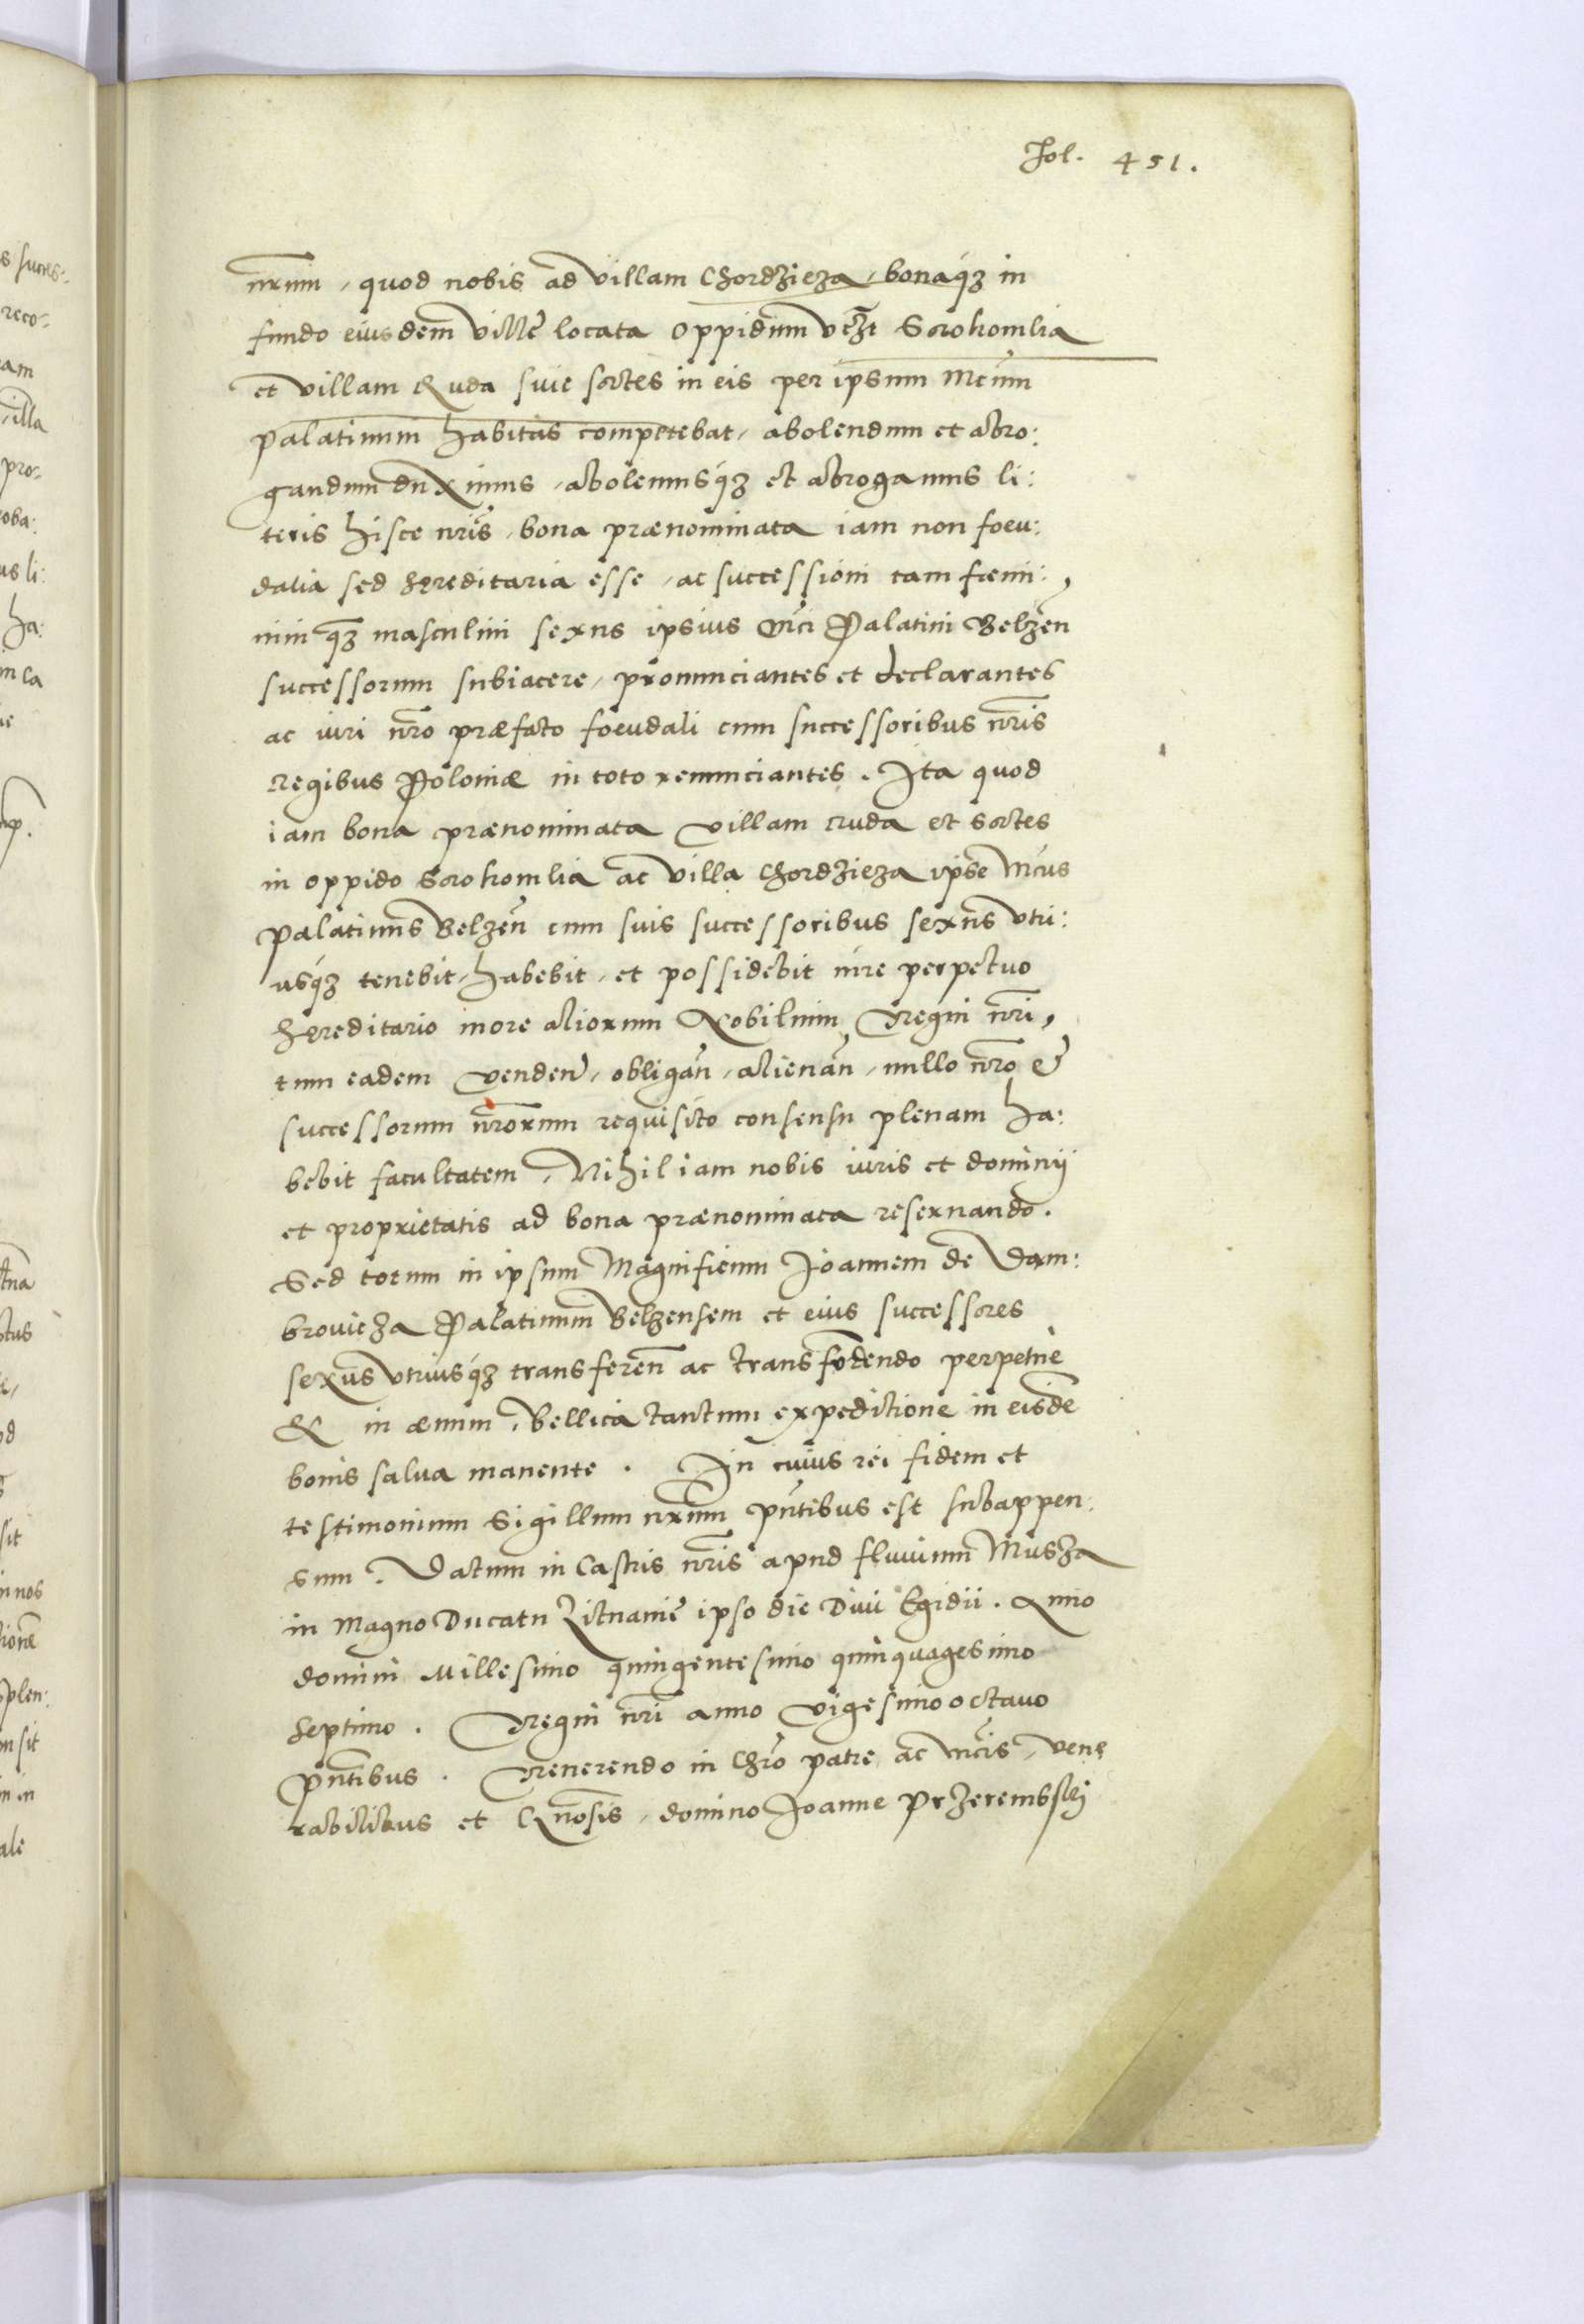 Fol. 451.
nrum, quod nobis ad villam Chordzieza, bonaq́ꝫ in
fundo eiusdem ville locata oppidum vꝫt Sorokomlia
et villam Ruda siue sortes in eis per ipsum Mcum
palatinum habitas competebat, abolendum et abro:
gandum duximus, abolemusq́ꝫ et abrogamus li:
teris hisce nris, bona prænominata iam non foeu:
dalia sed hęreditaria esse, ac successioni tam fœmi:
nini qꝫ masculini sexus ipsius Mci Palatini Belzen
successorum subiacere, pronunciantes et declarantes
ac iuri nro præfato foeudali cum successoribus nris
Regibus Poloniæ in toto renunciantes. Ita quod
iam bona prænominata villam ruda et sortes
in oppido Sorokomlia ac villa Chordzieza ipse Mcus
palatinus Belzen cum suis successoribus sexus vtri:
usq́ꝫ tenebit, habebit, et possidebit iure perpetuo
hęreditario more aliorum Nobilium Regni nri,
tum eadem venden, obligan, alienan, nullo nro et
successorum nrorum requisito consensu plenam ha:
bebit facultatem, Nihil iam nobis iuris et dominij
et proprietatis ad bona prænominata reseruando.
Sed totum in ipsum Magnificum Joannem de Dam:
browicza Palatinum Belzensem et eius successores
sexus vtriusq́ꝫ transferen ac transfundendo perpetuè
& in æuum, Bellica tantum expeditione in eisdē
bonis salua manente. In cuius rei fidem et
testimonium Sigillum nrum pntibus est subappen:
sum. Datum in Castris nris apud fluuium Musza
in Magno Ducatu Litnaniē ipso die Diui Egidii. Anno
domini Millesimo quingentesimo quinquagesimo
septimo. Regni nri anno vigesimooctauo
pntibus. Reuerendo in Chro patre ac Mcis, Venę
rabilibus et Gnosis, domino Joanne Przerembskij